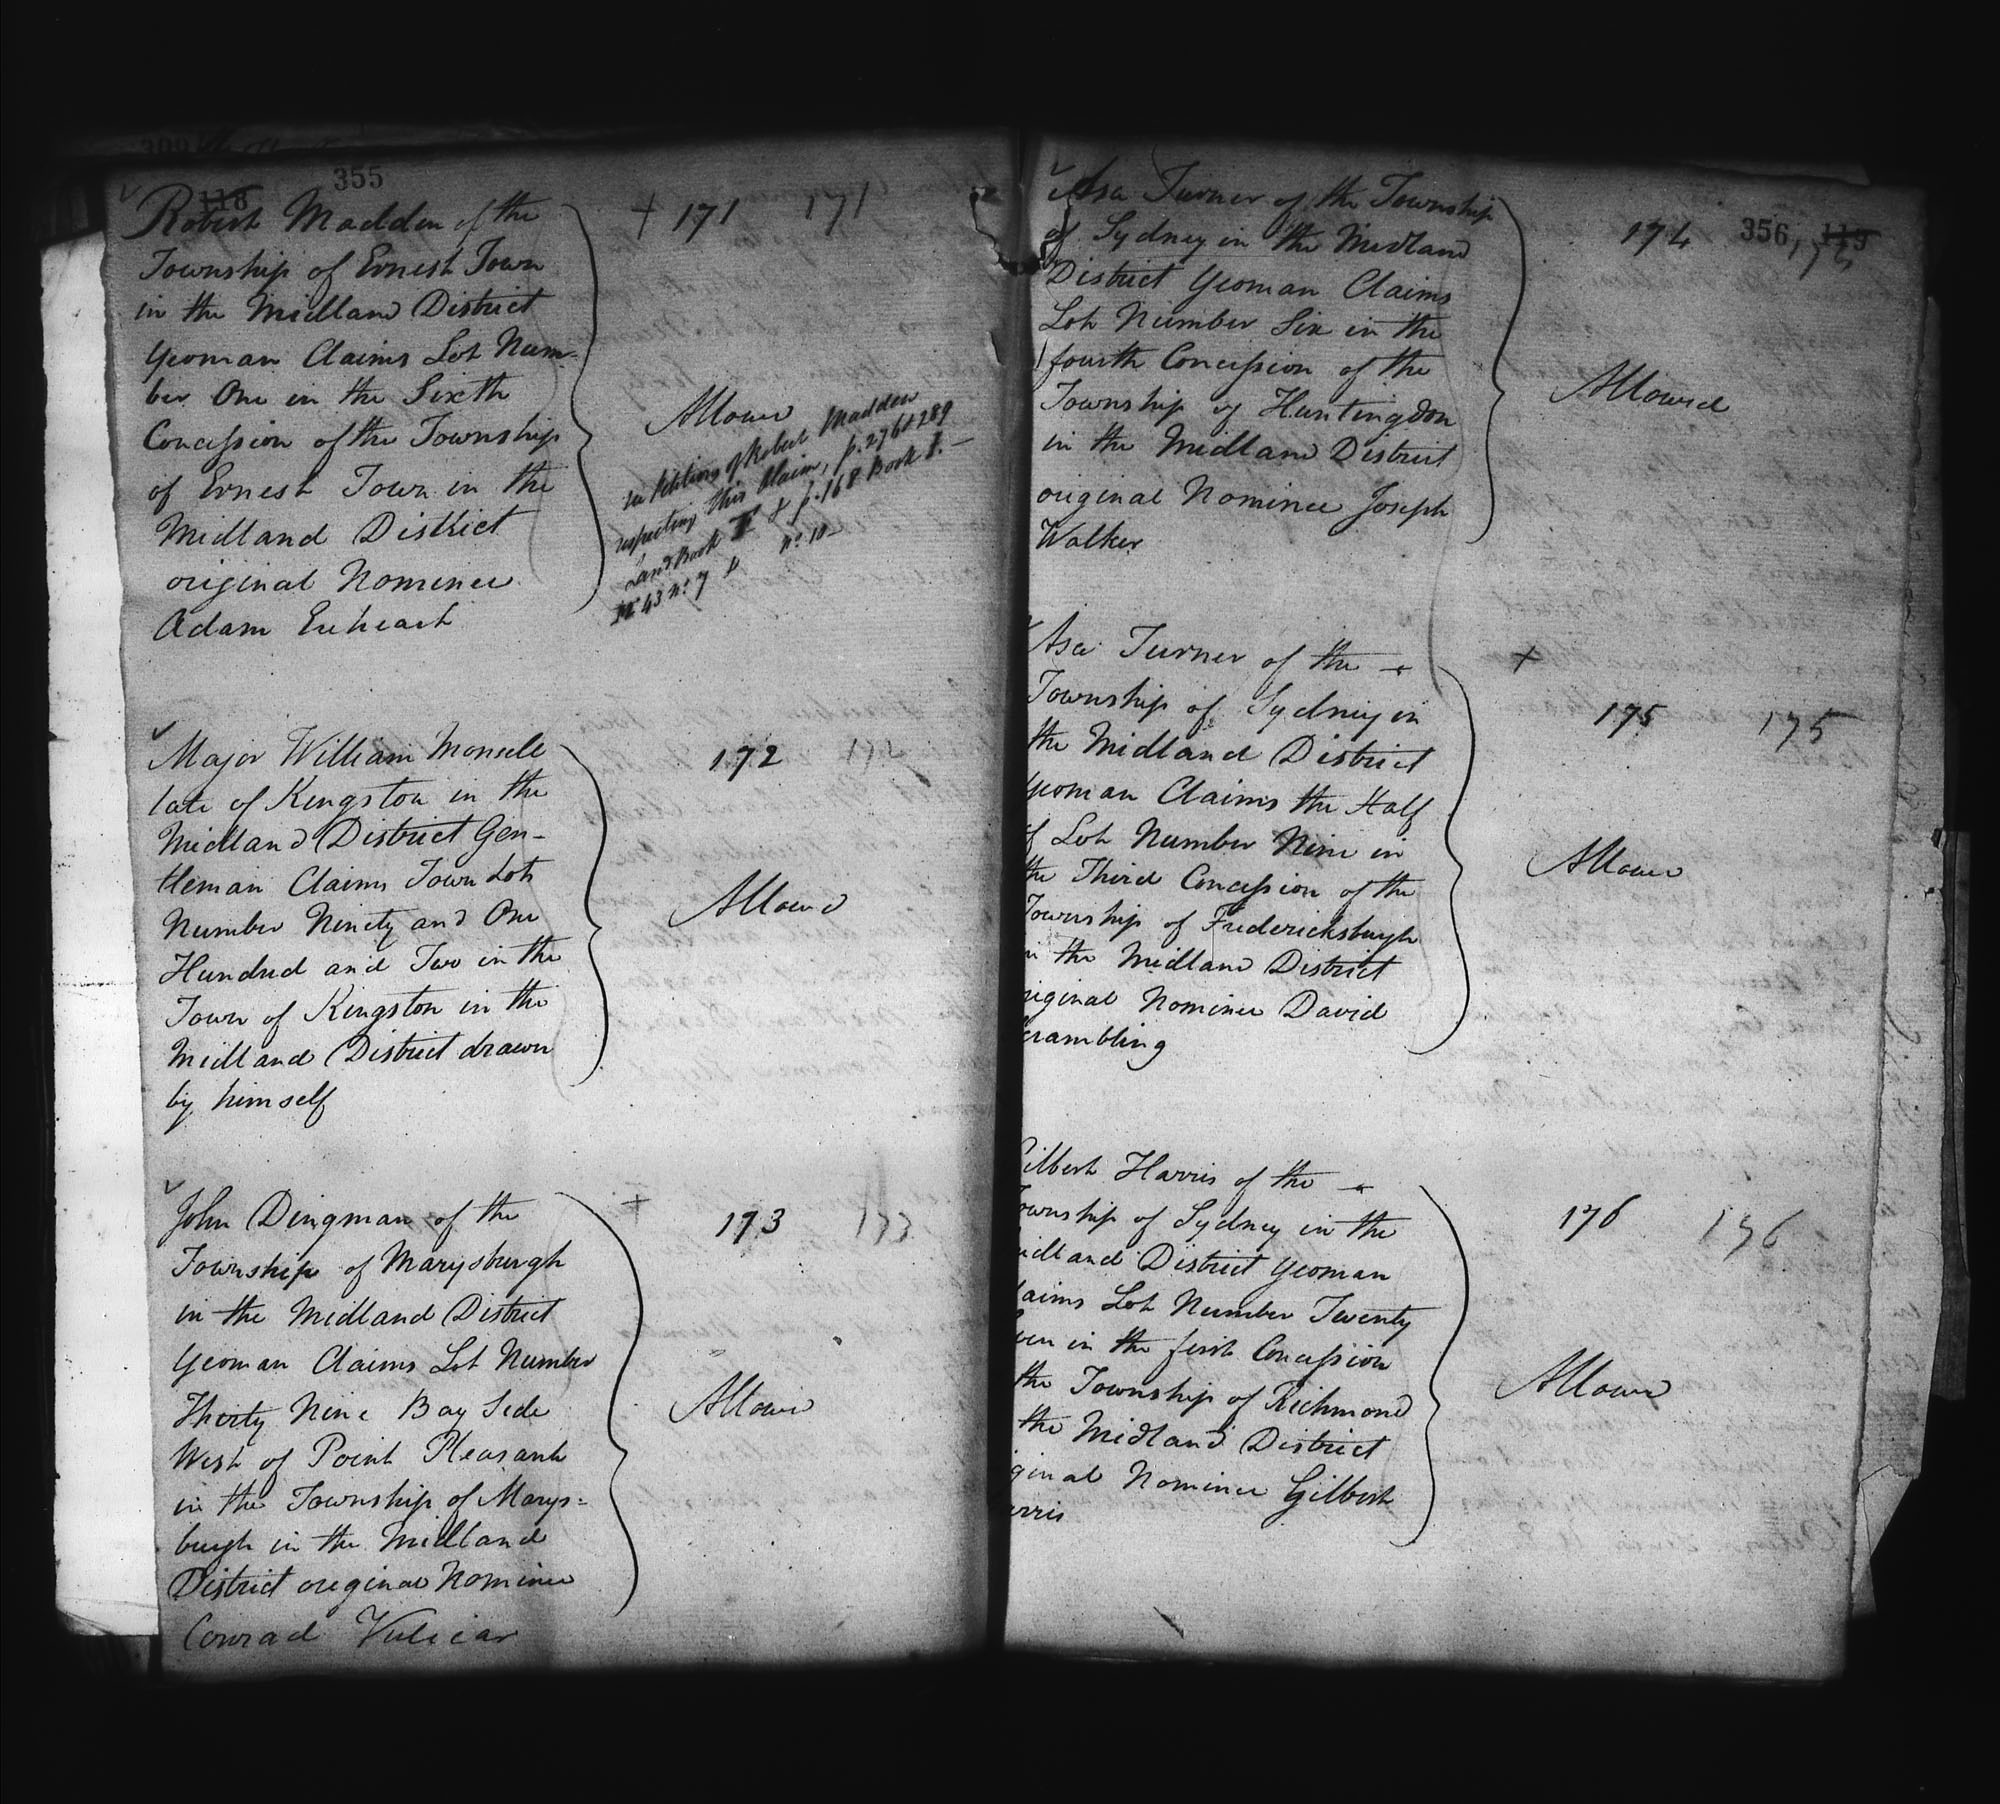 355
118
Robert Madden of the
Township of Ernest Town
in the Midland District
Yeoman Claims Lot Num-
ber One in the Sixth
Concession of the Township
of Ernest Town in the
Midland District
original Nominee
Adam
+ 171 171
Allowed
Petitions of Robert Madden
respecting this Claim, p. 276 & 289
Land Book & p. 168 Book I. —
43 No 7 & No 10 —
Major William Monsell
late of Kingston in the
Midland District Gen-
tleman Claims Town Lots
Number Ninety and One
Hundred and Two in the
Town of Kingston in the
Midland District drawn
by himself
172 172
Allowed
John Dingman of the
Township of Marysburgh
in the Midland District
Yeoman Claims Lot Number
Thirty Nine Bay Side
West of Point Pleasant
in the Township of Marys=
burgh in the Midland
District original Nominee
Conrad
+ 173 173
Allowed
356 119
Asa Turner of the Township
of Sydney in the Midland
District Yeoman Claims
Lot Number Six in the
fourth Concession of the
Township of Huntingdon
in the Midland District
original Nominee Joseph
Walker
174
Allowed
Asa Turner of the
Township of Sydney in
the Midland District
Yeoman Claims the Half
of Lot Number Nine in
the Third Concession of the
Township of Fredericksburgh
in the Midland District
riginal Nominee David
crambling
+
175 175
Allowed
ilbert Harris of the
ownship of Sydney in the
idland District Yeoman
laims Lot Number Twenty
ven in the first Concession
the Township of Richmond
the Midland District
ginal Nominee Gilbert
arris
176 176
Allowed